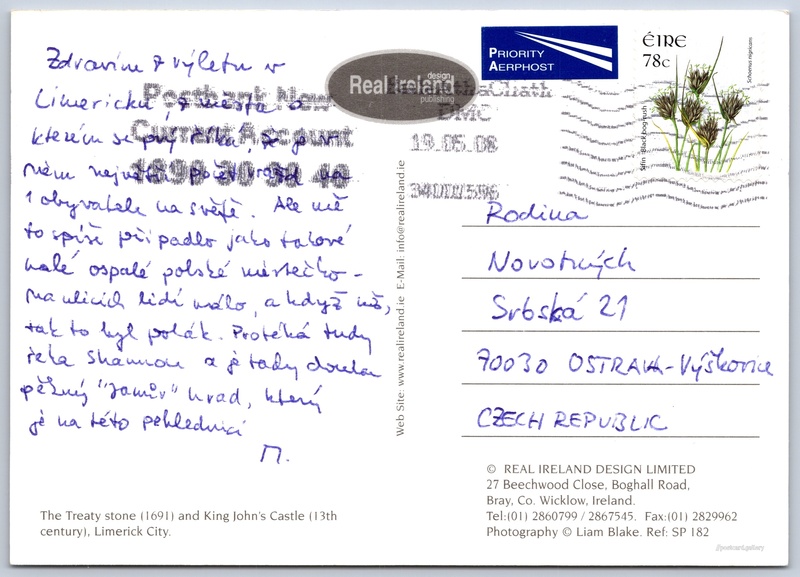 Zdravím z výletu v
Limericku, z města o
kterém se prý říká, že je v
něm největší počet vražd na
1 obyvatele na světě. Ale mě
to spíše připadlo jako takové
malé ospalé polské městečko -
na ulicích lidí málo, a když už,
tak to byl polák. Protéká tudy
řeka Shannon a je tady docela
pěkný "Janův" hrad, který
je na této pohlednici
M.
The Treaty stone (1691) and King John's Castle (13th
century), Limerick City.
Real Ireland
design
publishing
Web Site: www.realireland.ie E-Mail: info@realireland.ie
Postbank New
Current Account
1890 30 34 40
PRIORITY
AERPHOST
Baile Átha Cliath
DMC
19.05.08
ÉIRE
78c
Schoenus nigricans
Sifín · Black bog-rush
Rodina
Novotných
Srbská 21
70030 OSTRAVA-Výškovice
CZECH REPUBLIC
© REAL IRELAND DESIGN LIMITED
27 Beechwood Close, Boghall Road,
Bray, Co. Wicklow, Ireland.
Tel:(01) 2860799 / 2867545. Fax:(01) 2829962
Photography © Liam Blake. Ref: SP 182
//postcard.gallery